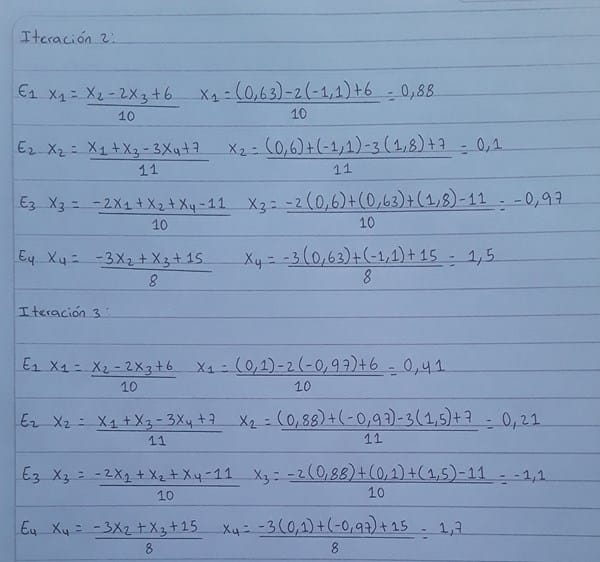 Iteración 2:
E1 X1 = X2 - 2X3 + 6 / 10 X1 = (0,63) - 2(-1,1) + 6 / 10 = 0,88
E2 X2 = X1 + X3 - 3X4 + 7 / 11 X2 = (0,6) + (-1,1) - 3(1,8) + 7 / 11 = 0,1
E3 X3 = -2X1 + X2 + X4 - 11 / 10 X3 = -2(0,6) + (0,63) + (1,8) - 11 / 10 = -0,97
E4 X4 = -3X2 + X3 + 15 / 8 X4 = -3(0,63) + (-1,1) + 15 / 8 = 1,5
Iteración 3:
E1 X1 = X2 - 2X3 + 6 / 10 X1 = (0,1) - 2(-0,97) + 6 / 10 = 0,41
E2 X2 = X1 + X3 - 3X4 + 7 / 11 X2 = (0,88) + (-0,97) - 3(1,5) + 7 / 11 = 0,21
E3 X3 = -2X1 + X2 + X4 - 11 / 10 X3 = -2(0,88) + (0,1) + (1,5) - 11 / 10 = -1,1
E4 X4 = -3X2 + X3 + 15 / 8 X4 = -3(0,1) + (-0,97) + 15 / 8 = 1,7